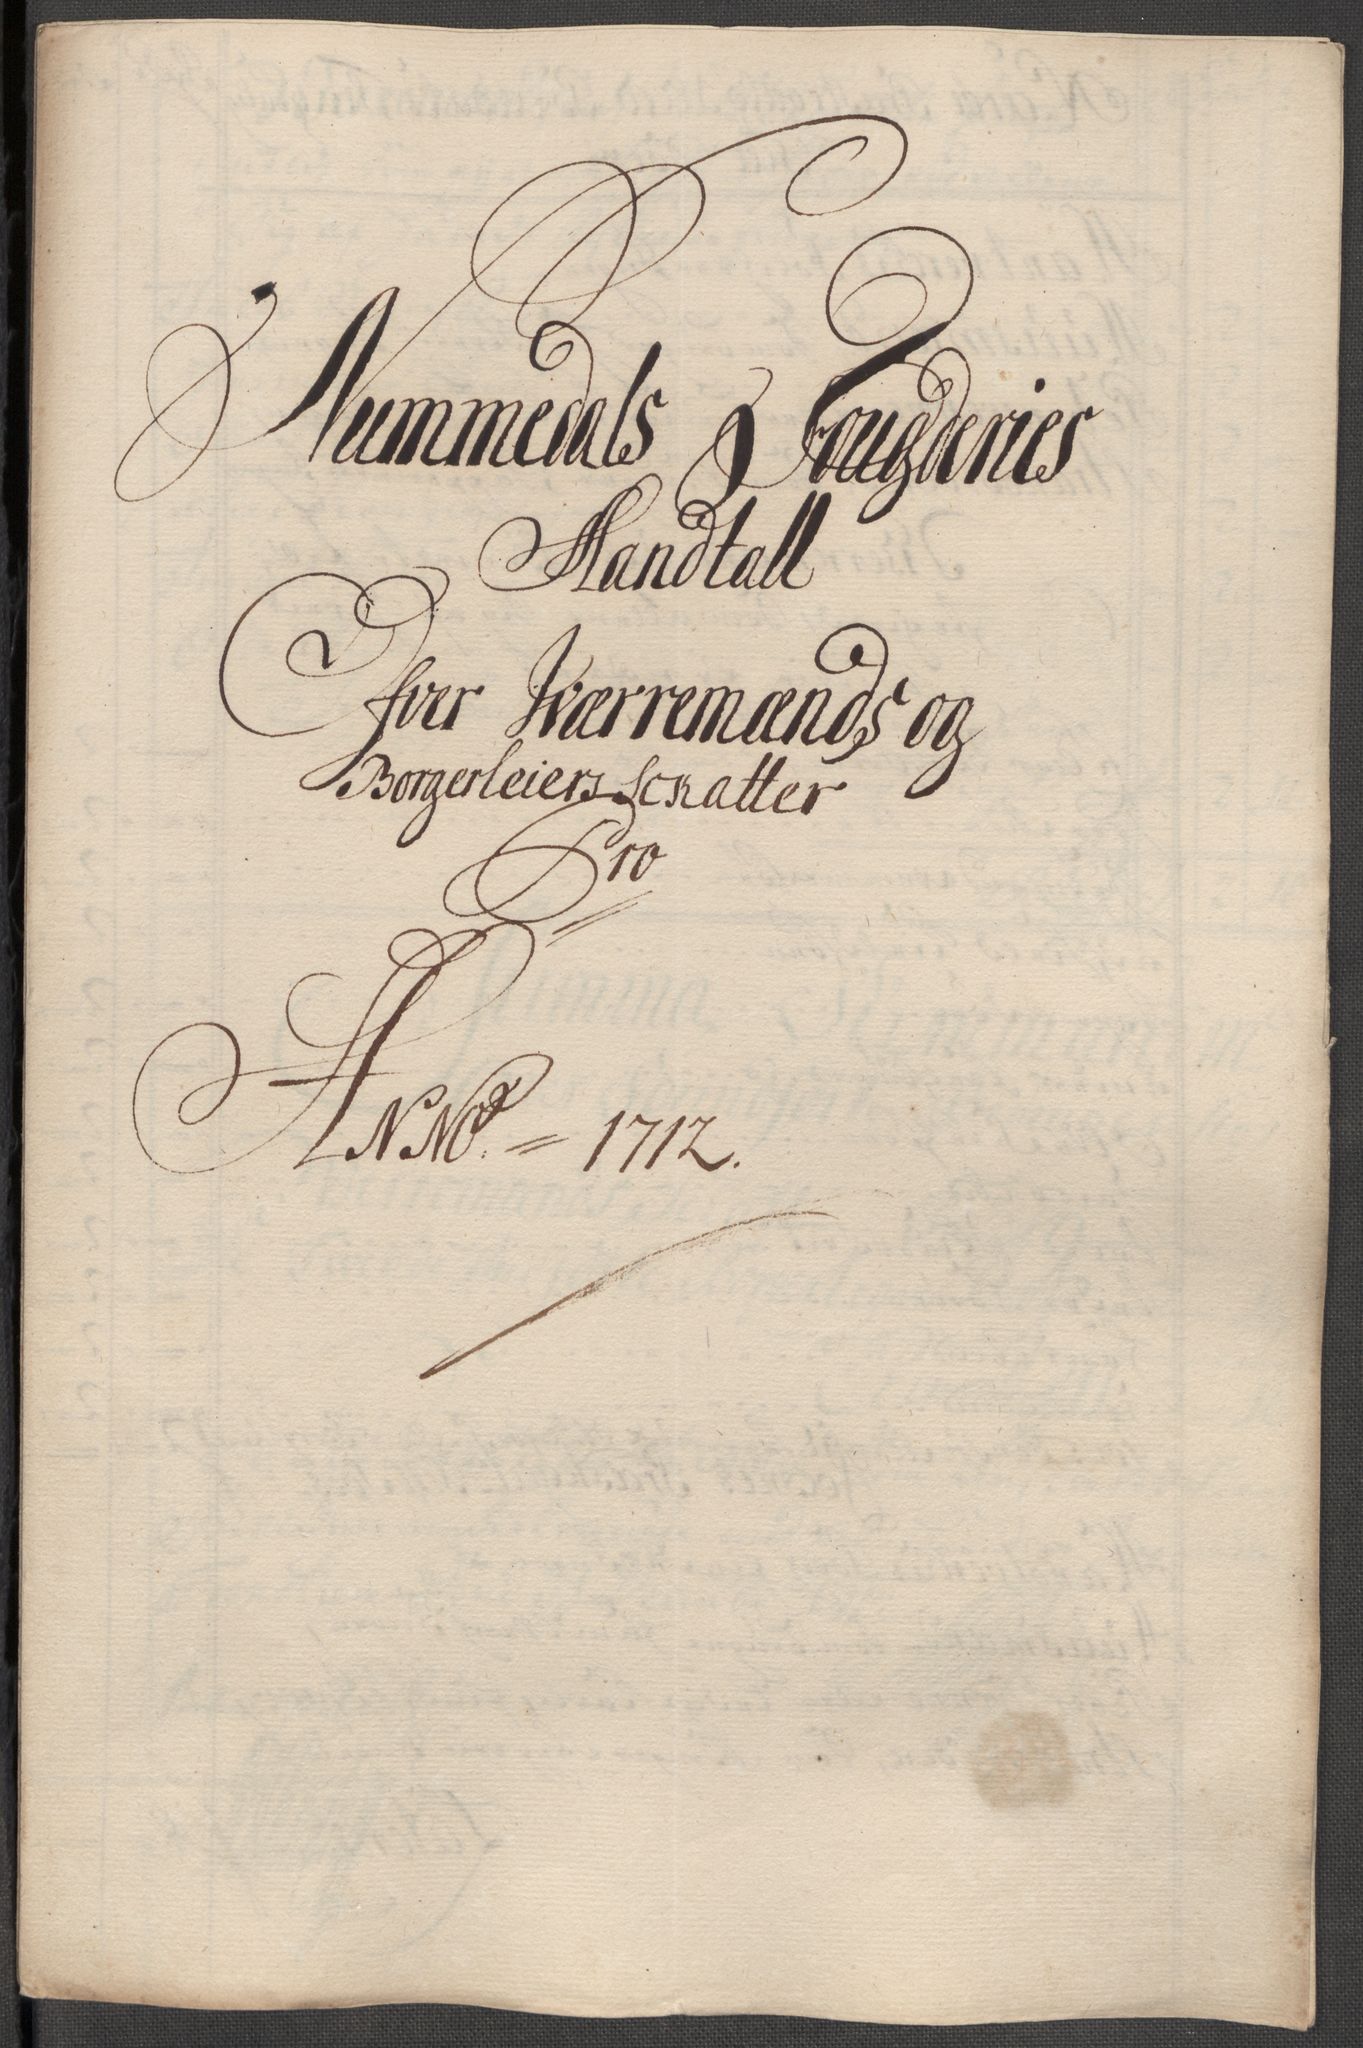 Nummedals Fougderies
Mandtall
Ofver Kværremænds og
Borgerleiers schatter
Pro
ANNO. = 1712.